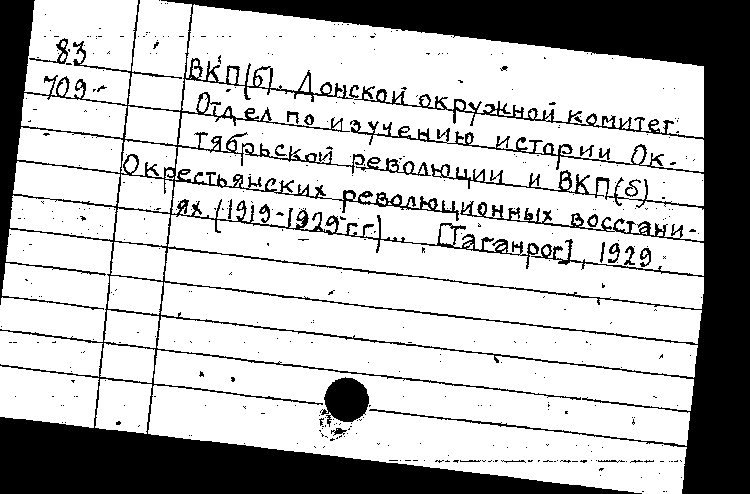 83
709-
ВКП(б). Донской окружной комитет.
Отдел по изучению истории Ок-
тябрьской революции и ВКП(б).
О крестьянских революционных восстани-
ях (1919-1929 г.г.)... [Таганрог], 1929.